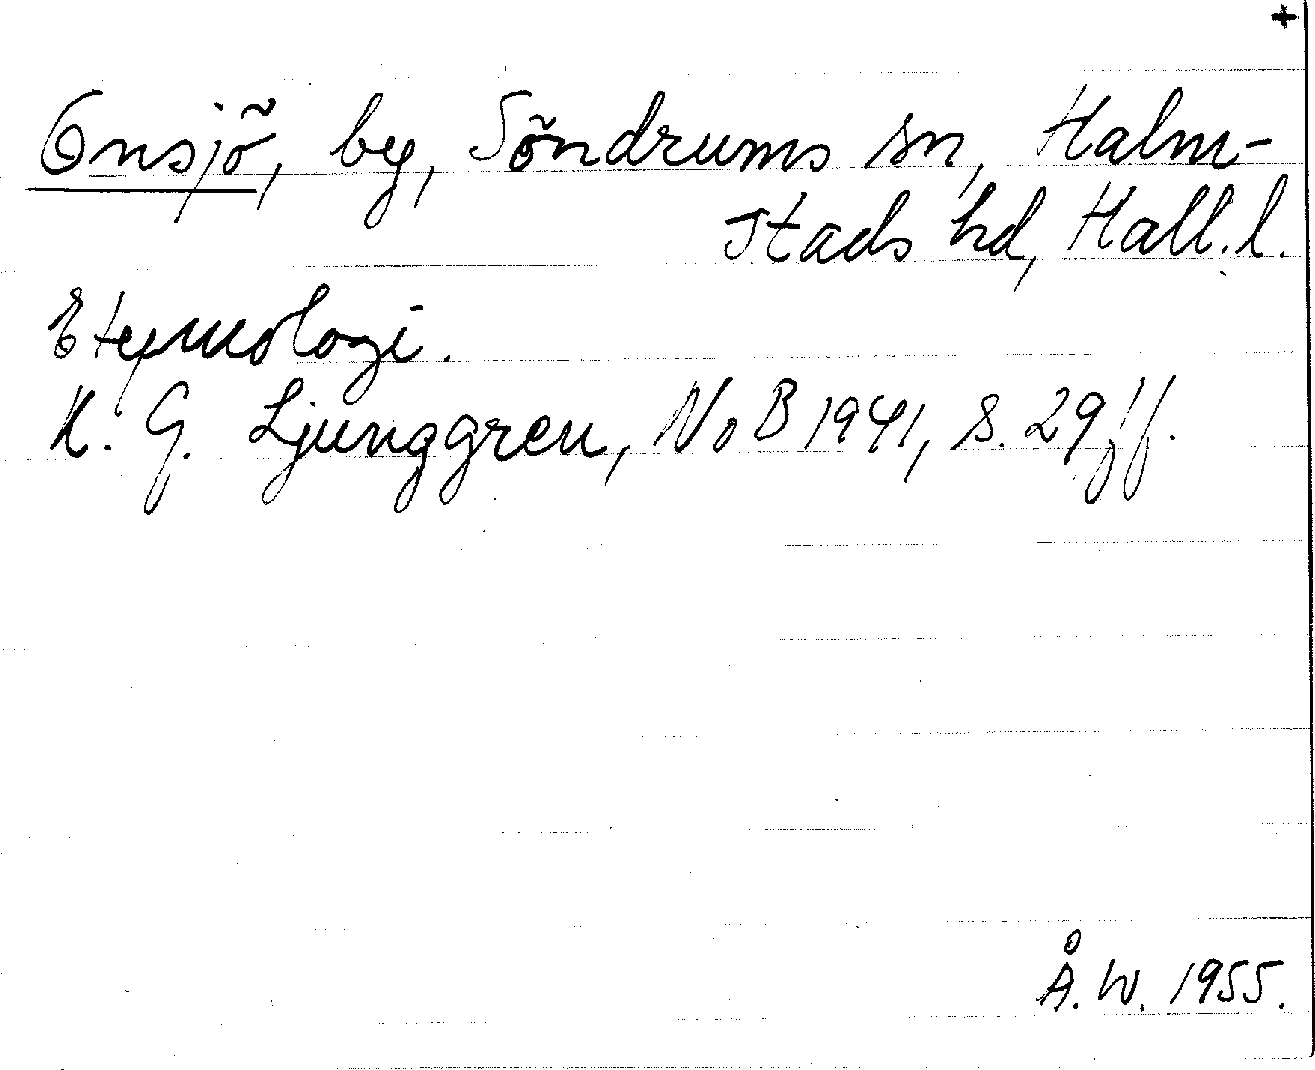 +
Onsjö, by, Söndrums sn, Halm-
stads hd, Hall. l.
Etymologi.
K. G. Ljunggren, NoB 1941, s. 29 ff.
Å. W. 1955.